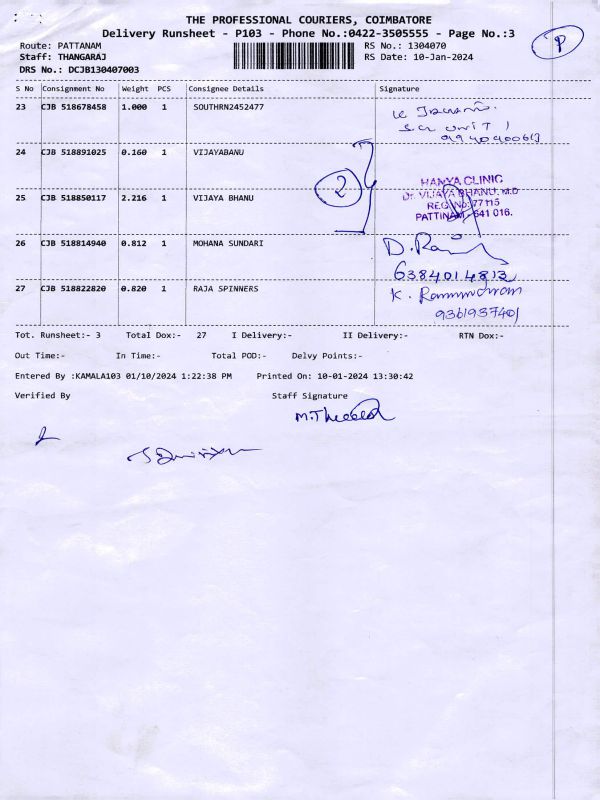 THE PROFESSIONAL COURIERS, COIMBATORE
Delivery Runsheet - P103 - Phone No.:0422-3505555 - Page No.:3
P
Route: PATTANAM RS No.: 1304070
Staff: THANGARAJ RS Date: 10-Jan-2024
DRS No.: DCJB130407003
S No Consignment No Weight PCS Consignee Details Signature
23 CJB 518678458 1.000 1 SOUTHRN2452477
unit 1
24 CJB 518891025 0.160 1 VIJAYABANU
2
HANYA CLINIC
Dr. VIJAYA BHANU, M.D
25 CJB 518850117 2.216 1 VIJAYA BHANU REG.No: 77115
PATTINAM - 641 016.
26 CJB 518814940 0.812 1 MOHANA SUNDARI D. Raj
6384014813
27 CJB 518822820 0.820 1 RAJA SPINNERS K.
9361937401
Tot. Runsheet:- 3 Total Dox:- 27 I Delivery:- II Delivery:- RTN Dox:-
Out Time:- In Time:- Total POD:- Delvy Points:-
Entered By :KAMALA103 01/10/2024 1:22:38 PM Printed On: 10-01-2024 13:30:42
Verified By Staff Signature